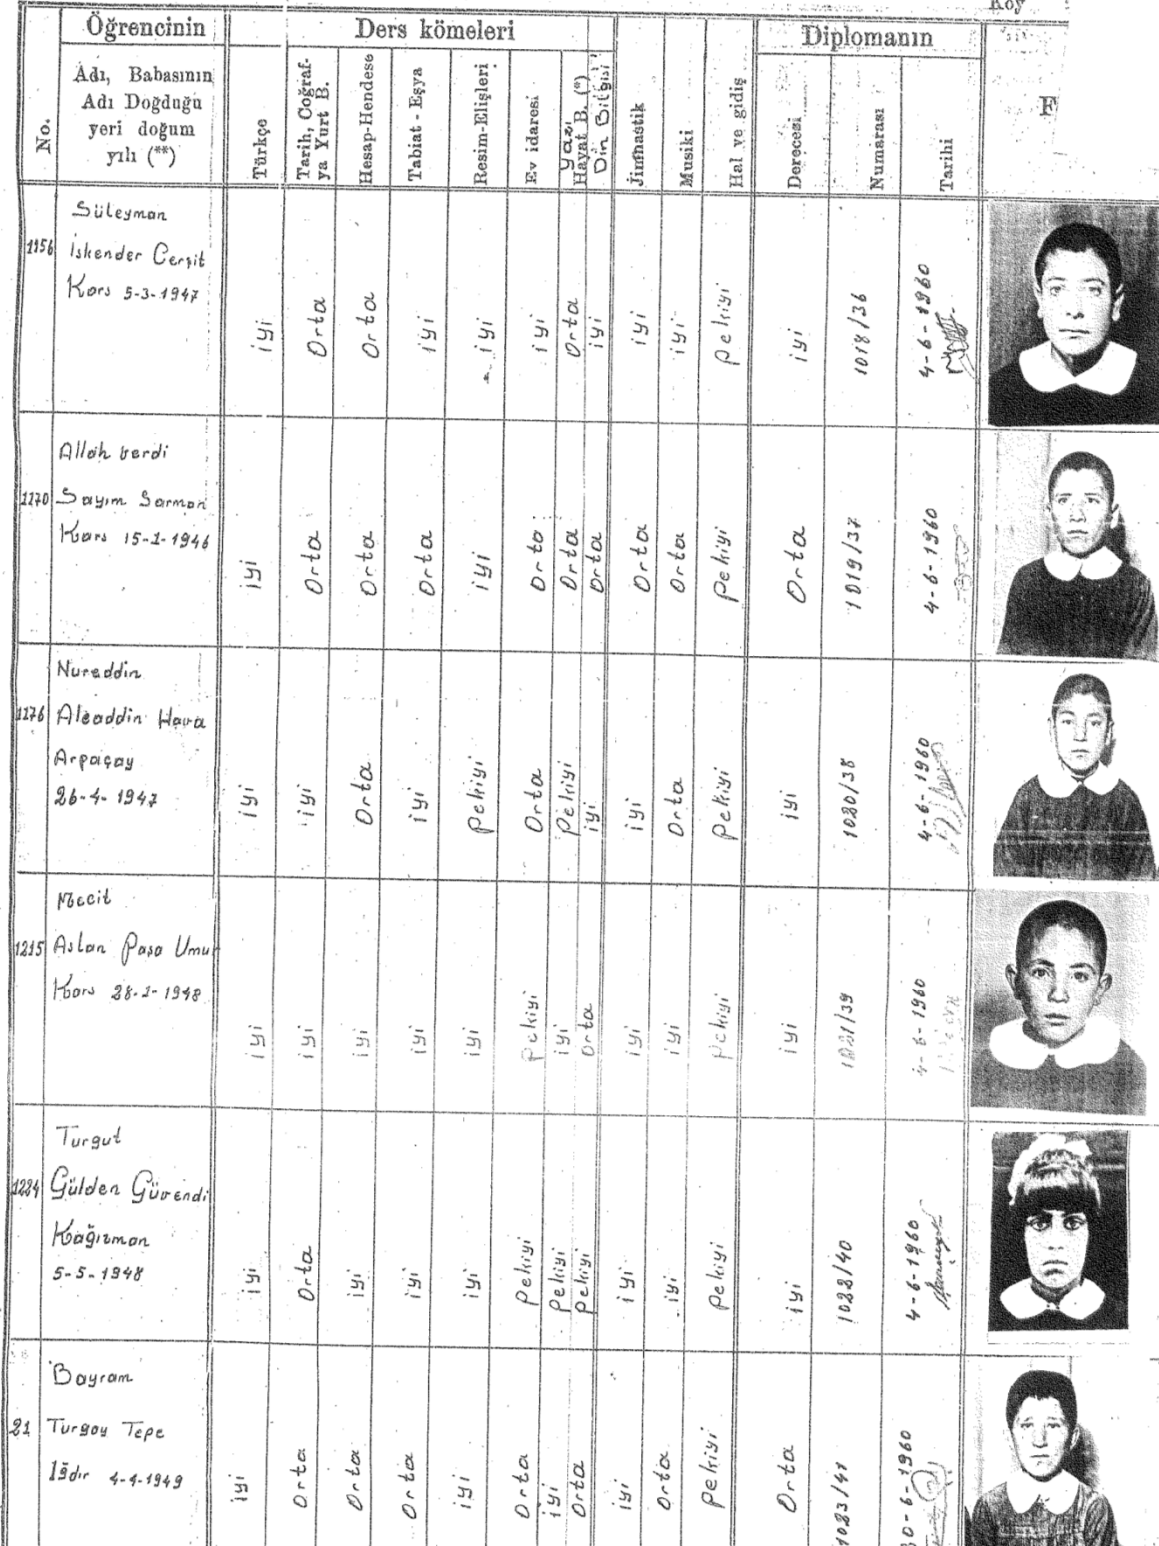 Köy
Öğrencinin
Ders kömeleri
Diplomanın
No.
Adı, Babasının
Adı Doğduğu
yeri doğum
yılı (**)
Türkçe
Tarih, Coğraf-
ya Yurt B.
Hesap-Hendese
Tabiat - Eşya
Resim-Elişleri
Ev idaresi
Yazı
Hayat B. (*)
Din Bilgisi
Jimnastik
Musiki
Hal ve gidiş
Derecesi
Numarası
Tarihi
F
1156
Süleyman
İskender Cerşit
Kars 5-3-1947
iyi
Orta
Orta
iyi
iyi
iyi
Orta
iyi
iyi
iyi
Pekiyi
iyi
1018/36
4-6-1960
1170
Allah verdi
Sayım Sarman
Kars 15-1-1946
iyi
Orta
Orta
Orta
iyi
Orta
Orta
Orta
Orta
Orta
Pekiyi
Orta
1019/37
4-6-1960
1176
Nureddin
Aleaddin Hava
Arpaçay
26-4-1947
iyi
iyi
Orta
iyi
Pekiyi
Orta
Pekiyi
iyi
iyi
Orta
Pekiyi
iyi
1020/38
4-6-1960
1215
Mecit
Aslan Paşa Umut
Kars 28-1-1948
iyi
iyi
iyi
iyi
iyi
Pekiyi
iyi
Orta
iyi
iyi
Pekiyi
iyi
1021/39
4-6-1960
1224
Turgut
Gülden Güvendi
Kağızman
5-5-1948
iyi
Orta
iyi
iyi
iyi
Pekiyi
Pekiyi
Pekiyi
iyi
iyi
Pekiyi
iyi
1022/40
4-6-1960
21
Bayram
Turgay Tepe
Iğdır 4-4-1949
iyi
Orta
Orta
Orta
iyi
Orta
iyi
Orta
iyi
Orta
Pekiyi
Orta
1023/41
30-6-1960